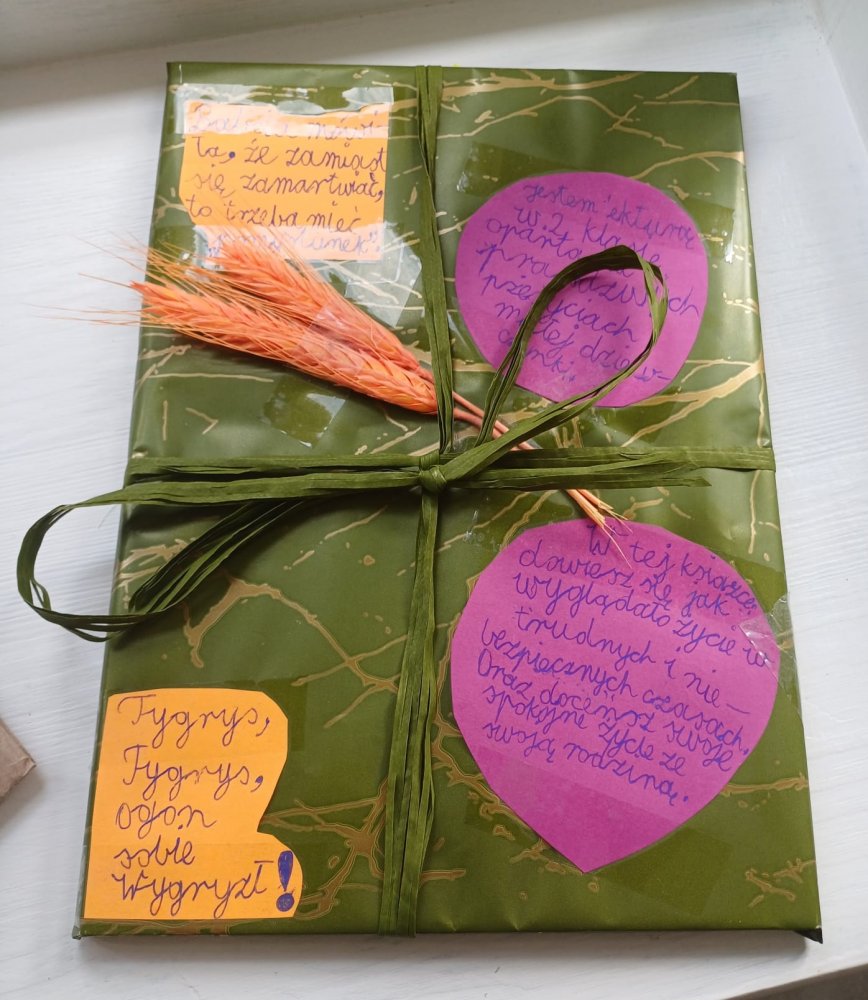 ta, że zamiast
się zamartwiać,
to trzeba mieć
Jestem lekturą
w 2 klasie
oparta
prawdziwych
przeżyciach
małej dziew-
czynki.
W tej książce
dowiesz się jak
wyglądało życie w
trudnych i nie-
bezpiecznych czasach.
Oraz docenisz swoje
spokojne życie ze
swoją rodziną.
Tygrys,
Tygrys,
ogon
sobie
wygryzł!